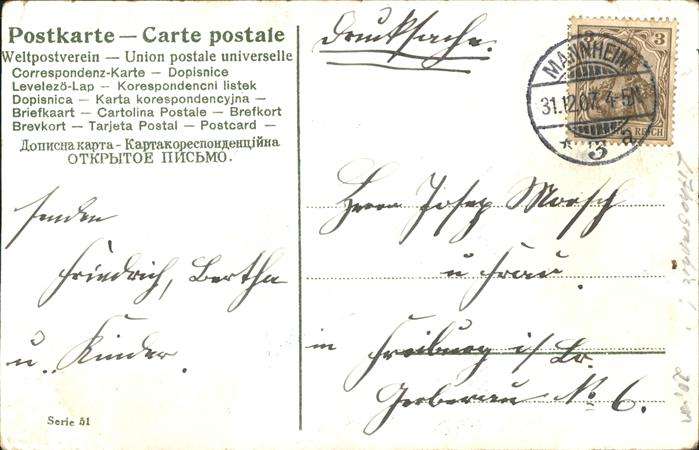 Postkarte — Carte postale
Weltpostverein — Union postale universelle
Correspondenz-Karte — Dopisnice
Levelező-Lap — Korespondencni listek
Dopisnica — Karta korespondencyjna —
Briefkaart — Cartolina Postale — Brefkort
Brevkort — Tarjeta Postal — Postcard —
Дописна карта - Картакореспонденційна
ОТКРЫТОЕ ПИСЬМО.
Drucksache.
3
REICH
MANNHEIM
31.12.07. 4-5N
* 3 a
senden
Friedrich, Bertha
u. Kinder.
Serie 51
Herrn Josef Morsch
u Frau.
in Freiburg i/ Br.
Gerberau No 6.